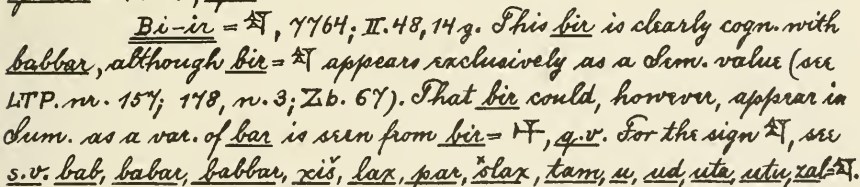 Bi-ir = 𒌓, 7764; II. 48, 14 g. This bir is clearly cogn. with
babbar, although bir = 𒌓 appears exclusively as a Sem. value (see
LTP. nr. 157; 178, n. 3; Zb. 67). That bir could, however, appear in
Sum. as a var. of bar is seen from bir = 𒁇, q.v. For the sign 𒌓, see
s.v. bab, babar, babbar, xiš, lax, par, šlax, tam, u, ud, uta, utu, zal = 𒌓.